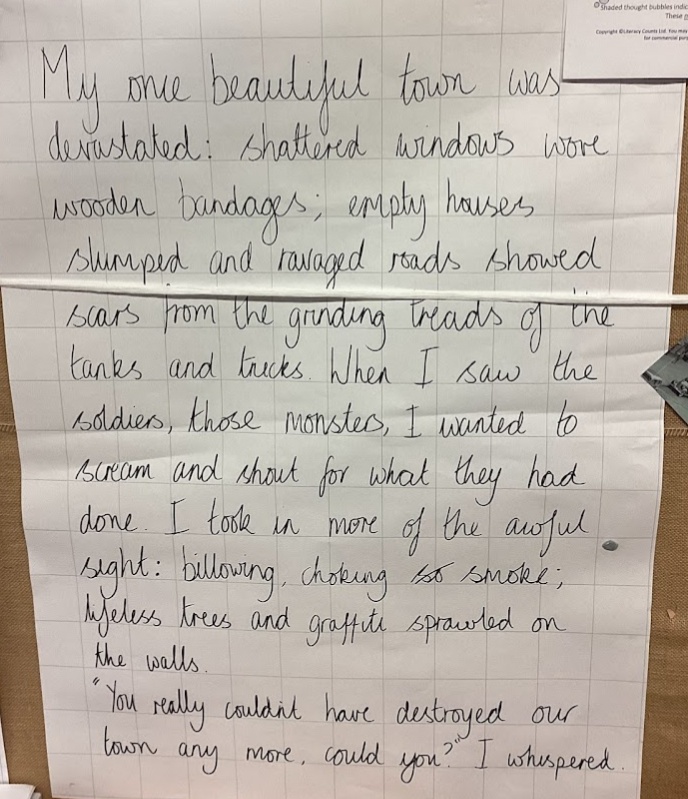 Shaded thought bubbles indic
These p
Copyright ©Literacy Counts Ltd. You may
for commercial purp
My once beautiful town was
devastated: shattered windows wore
wooden bandages; empty houses
slumped and ravaged roads showed
scars from the grinding treads of the
tanks and trucks. When I saw the
soldiers, those monsters, I wanted to
scream and shout for what they had
done. I took in more of the awful
sight: billowing, choking so smoke;
lifeless trees and graffiti sprawled on
the walls.
"You really couldn't have destroyed our
town any more, could you?" I whispered.